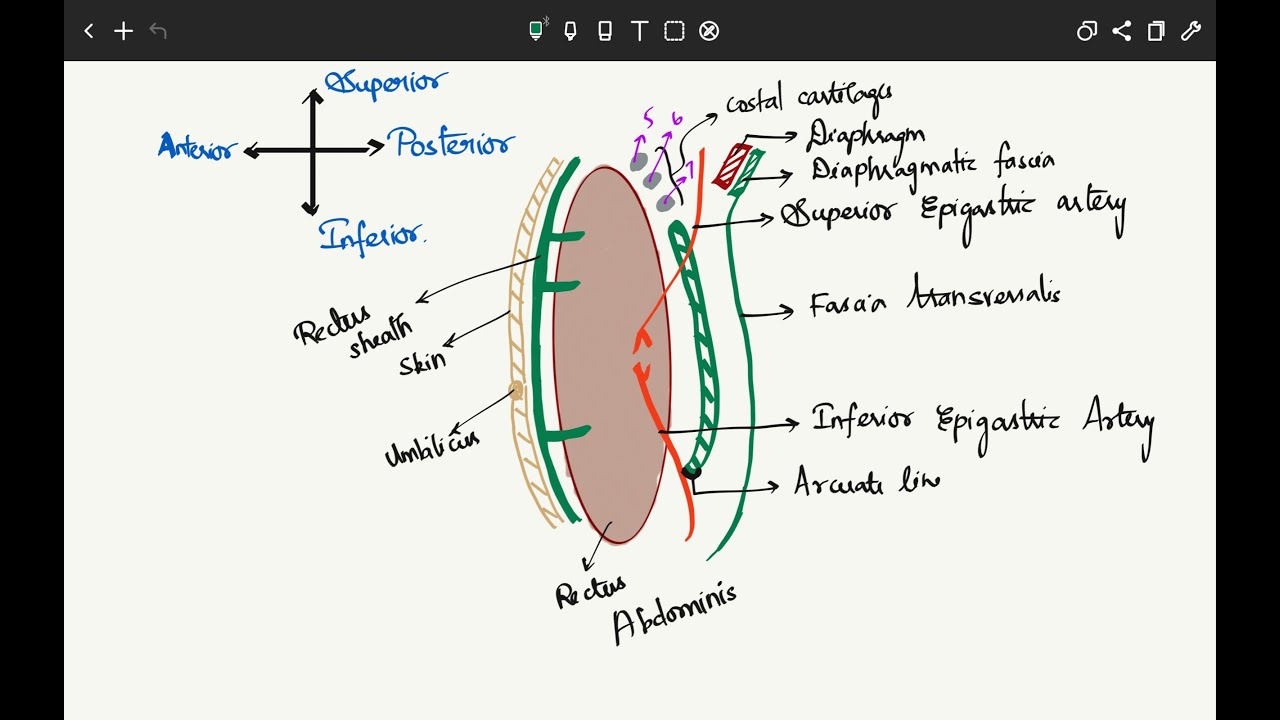 Superior
Anterior
Posterior
Inferior.
5
6
7
costal cartilages
Diaphragm
Diaphragmatic fascia
Superior Epigastric artery
Fascia transversalis
Rectus
sheath
Skin
Umbilicus
Inferior Epigastric Artery
Arcuate line
Rectus
Abdominis
T